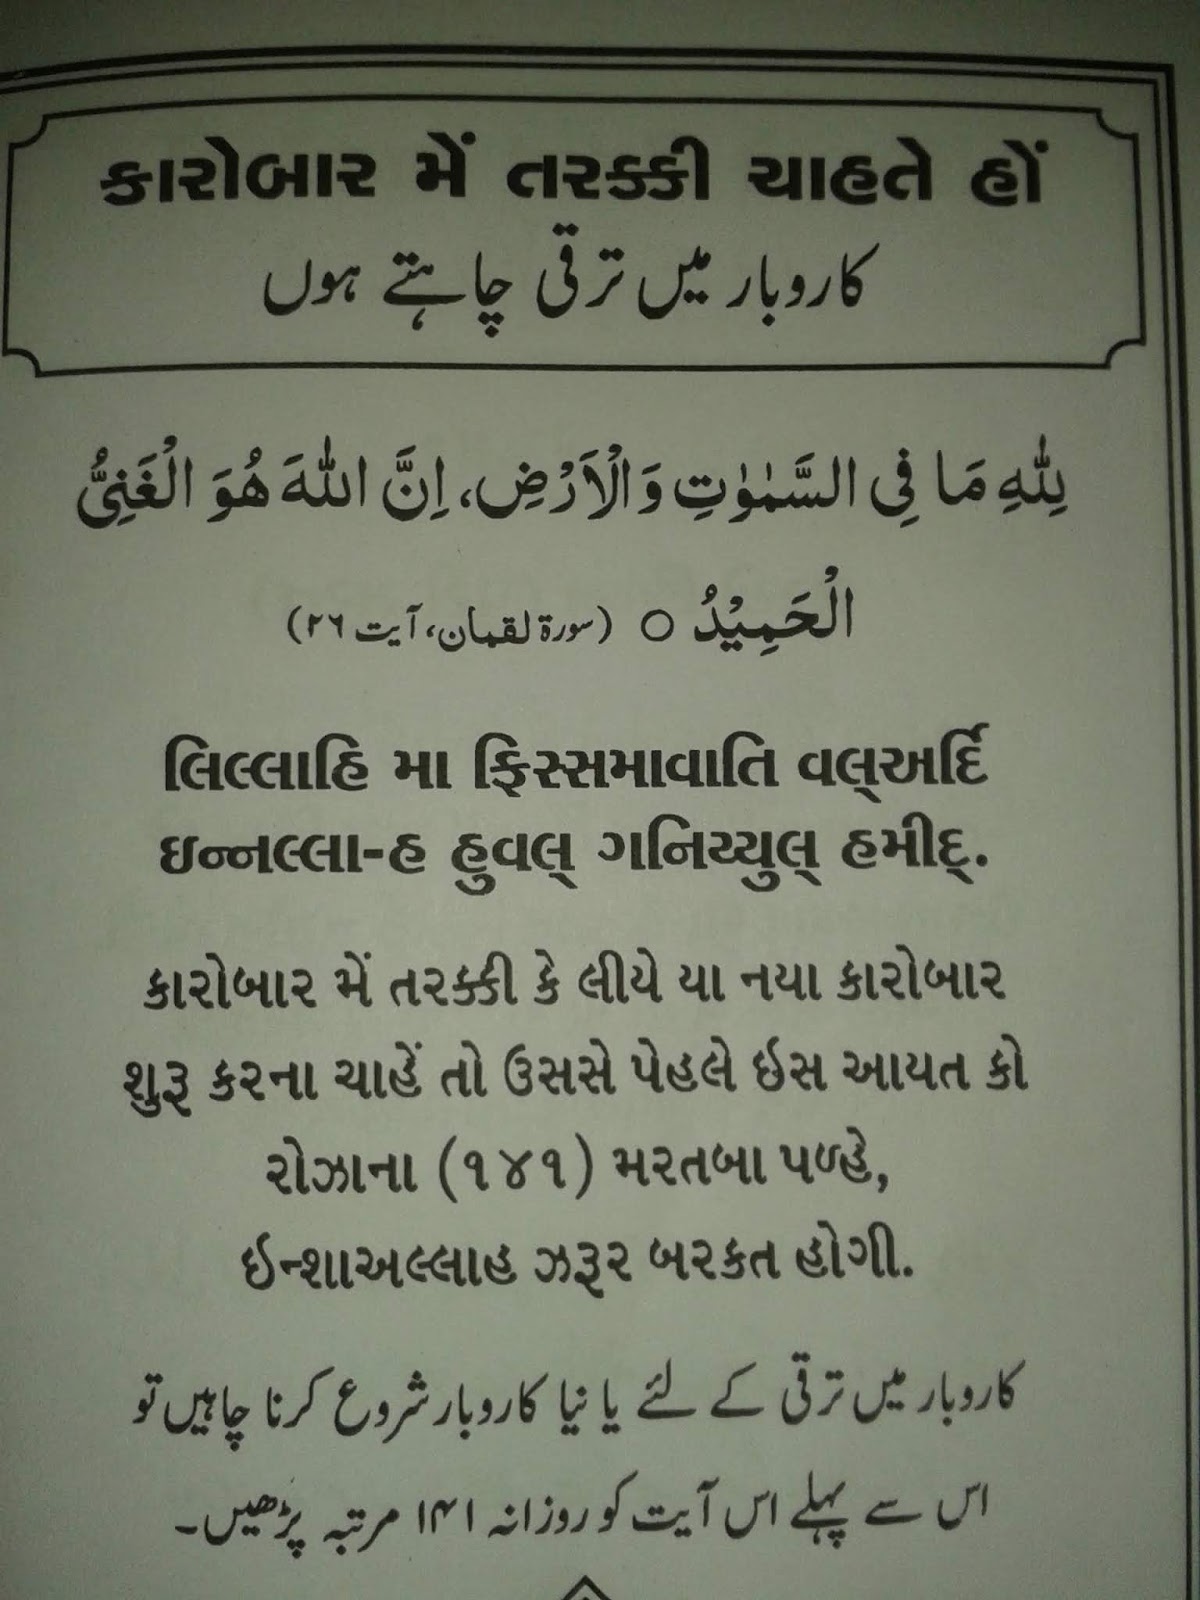 કારોબાર મેં તરક્કી ચાહતે હોં
کاروبار میں ترقی چاہتے ہوں
لِلّٰهِ مَا فِى السَّمٰوٰتِ وَالْاَرْضِ، اِنَّ اللّٰهَ هُوَ الْغَنِىُّ
الْحَمِيْدُ ○ (سورة لقمان، آیت ۲۶)
લિલ્લાહિ મા ફિસ્સમાવાતિ વલ્અર્દિ
ઇન્નલ્લા-હ હુવલ્ ગનિય્યુલ્ હમીદ્.
કારોબાર મેં તરક્કી કે લીયે યા નયા કારોબાર
શુરૂ કરના ચાહેં તો ઉસસે પેહલે ઇસ આયત કો
રોઝાના (૧૪૧) મરતબા પળ્હે,
ઇન્શાઅલ્લાહ ઝરૂર બરકત હોગી.
کاروبار میں ترقی کے لئے یا نیا کاروبار شروع کرنا چاہیں تو
اس سے پہلے اس آیت کو روزانہ ۱۴۱ مرتبہ پڑھیں۔